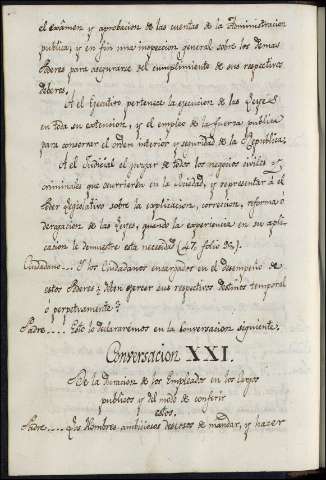 el exâmen y aprobacion de las cuentas de la Administracion
publica; y en fin una inspeccion general sobre los demas
Poderes para asegurarse del cumplimiento de sus respectivos
deberes.
Al Executivo pertenece la execucion de las Leyes
en toda su extencion, y el empleo de la fuerza publica
para conservar el orden interior y seguridad de la Republica.
Al Judicial el juzgar de todos los negocios civiles y
criminales que ocurrieren en la Sociedad, y representar á el
Poder Legislativo sobre la explicacion, correccion, reforma o
derogacion de las Leyes, quando la experiencia en su apli-
cacion le demuestre esta necesidad (47. folio 96.).
Ciudadano.... Y los Ciudadanos encargados en el desempeño de
estos Poderes ¿deben exercer sus respectivos destinos temporal
ó perpetuamente?
Padre.... Esto lo declararemos en la Conversacion siguiente.
Conversacion XXI.
De la duracion de los Empleados en los Cargos
publicos y del modo de conferir
estos.
Padre.... Los Hombres ambiciosos deseosos de mandar, y hacer